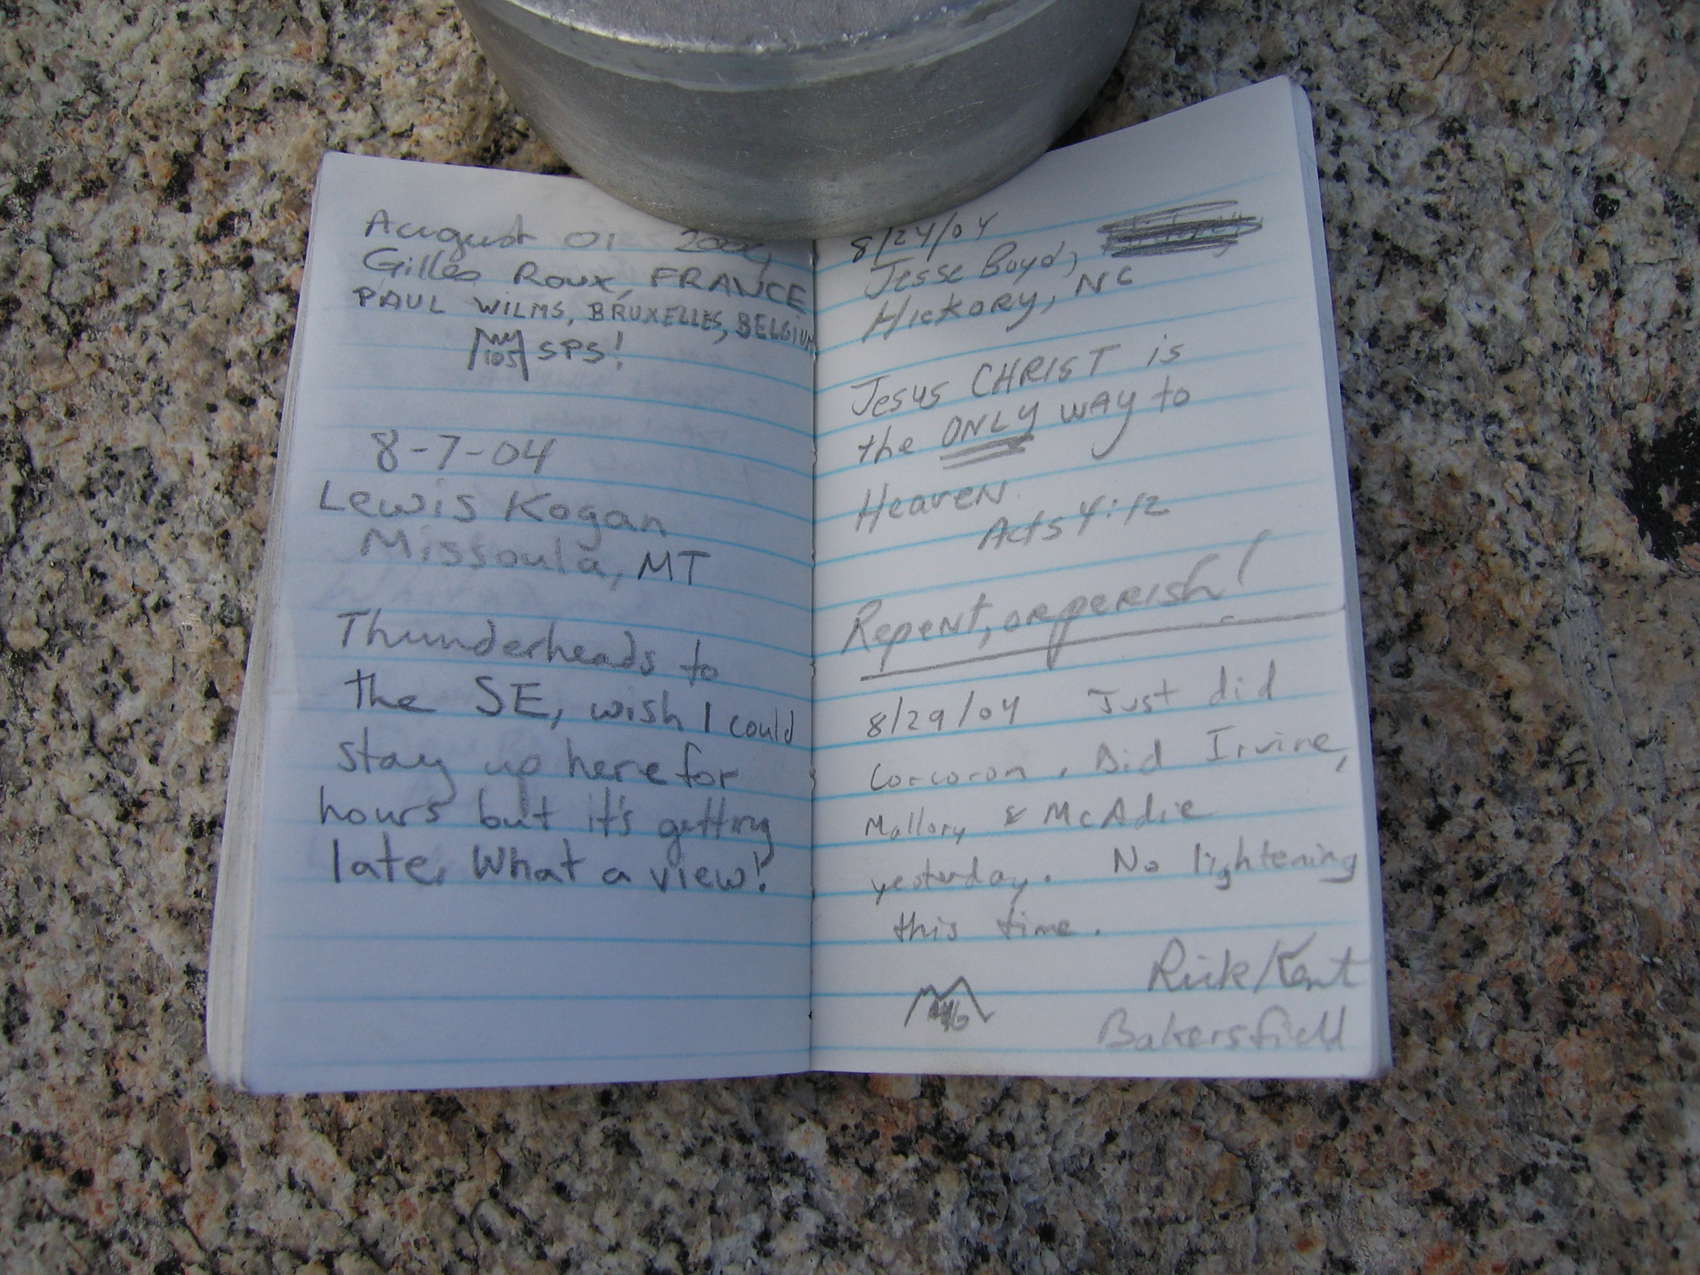 August 01 2004
Gilles Roux, FRANCE
PAUL WILMS, BRUXELLES, BELGIUM
105 SPS!
8-7-04
Lewis Kogan
Missoula, MT
Thunderheads to
the SE, wish I could
stay up here for
hours but it's getting
late. What a view!
8/24/04
Jesse Boyd,
Hickory, NC
Jesus CHRIST is
the ONLY WAY to
Heaven.
Acts 4:12
Repent, or perish!
8/29/04 Just did
Corcoron. Did Irvine,
Mallory & McAdie
yesterday. No lightening
this time.
Rick Kent
Bakersfield